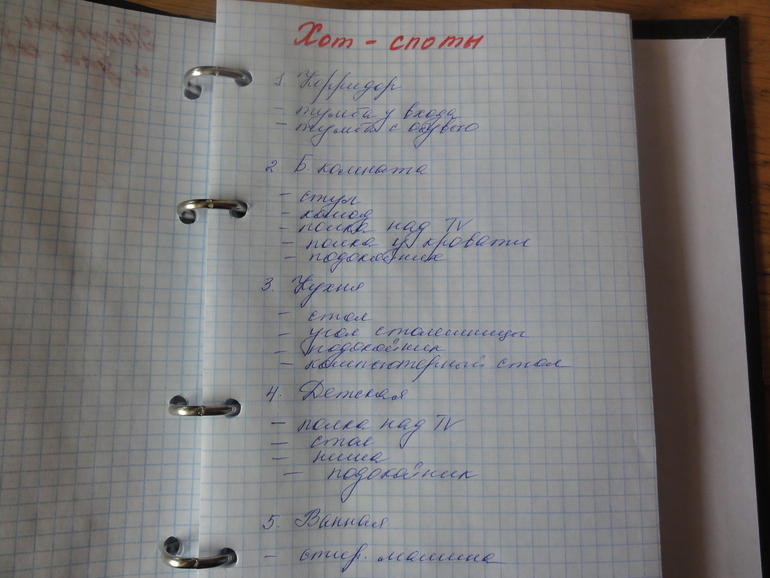 Хот - споты
1 Корридор
- тумба у входа
- тумба с обувью
2 Б. комната
- стул
- комод
- полка над TV
- полка у кровати
- подоконник
3. Кухня
- стол
- угол столешницы
- подоконник
- компьютерный стол
4. Детская
- полка над TV
- стол
- ниша
- подоконник
5. Ванная
- стир. машина